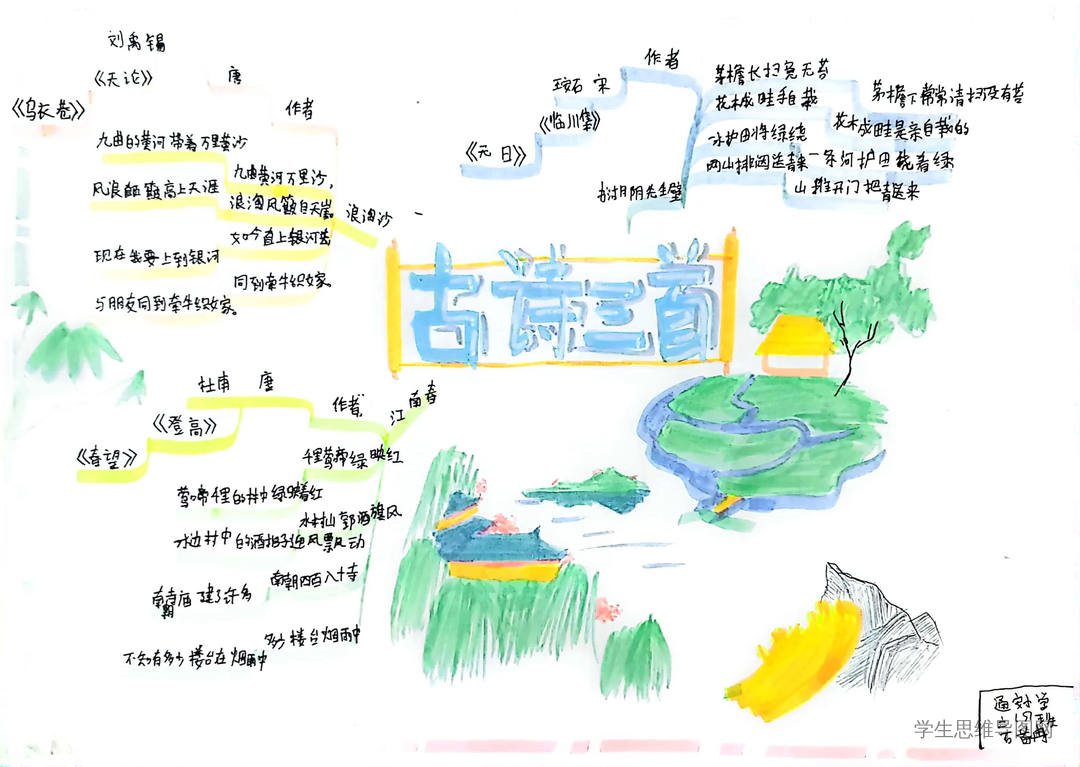 刘禹锡
《天论》
唐
《乌衣巷》
作者
九曲的黄河带着万里黄沙
九曲黄河万里沙,
浪淘风簸自天崖。
浪淘沙
如今直上银河去
现在我要上到银河
同到牵牛织女家。
与朋友同到牵牛织女家。
作者
王安石 宋
《临川集》
《元日》
茅檐长扫免无苔
茅檐下常常清扫没有苔
花木成畦手自栽
花木成畦是亲自栽的
一水护田将绿绕
两山排闼送青来
一条河护田绕着绿
山推开门把青送来
书湖阴先生壁
古诗三首
杜甫 唐
作者
江南春
《登高》
《春望》
千里莺啼绿映红
莺啼千里的村中绿映着红
水村山郭酒旗风
水边村中的酒招子迎风飘动
南朝四百八十寺
建了许多
多少楼台烟雨中
不知有多少楼台在烟雨中
学生思维导图网